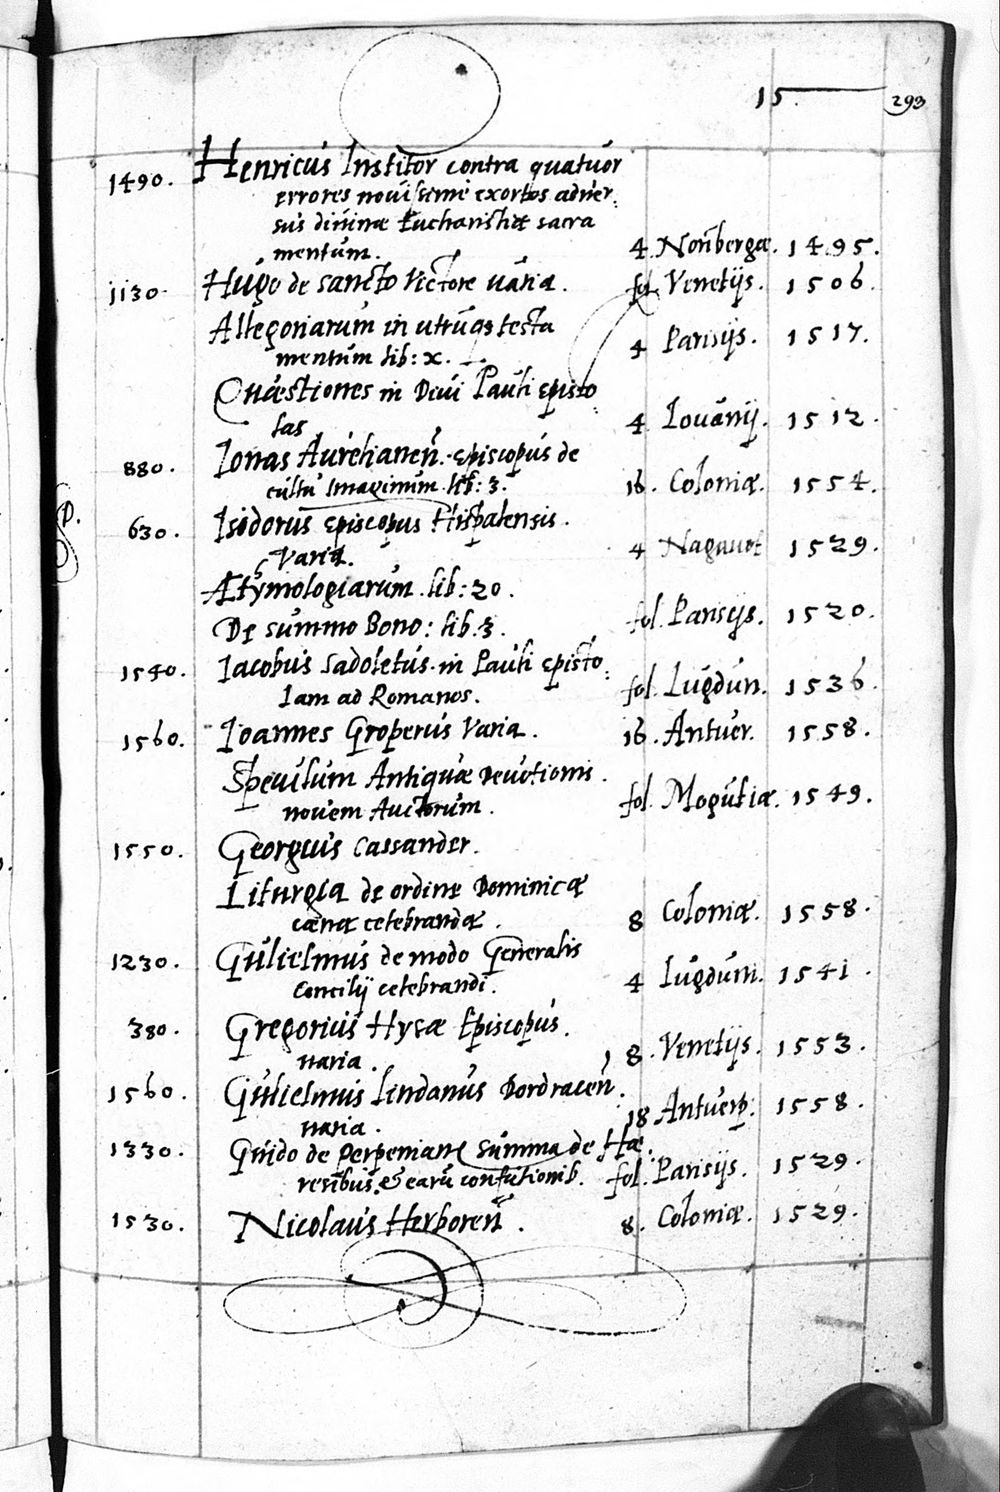 15
293
1490. Henricus Institor contra quatuor
errores nouissime exortos aduer,
sus diuinæ Eucharistiæ sacra
mentum. 4 Noribergæ. 1495.
1130. Hugo de sancto Victore uaria. fol. Venetijs. 1506
Allegoriarum in utruqs testa
mentum lib: x. 4 Parisijs. 1517.
Quæstiones in Diui Pauli episto
las 4 Louanij. 1512.
880. Ionas Aurelianen. episcopus de
cultu Imaginum. lib: 3. 16. Coloniæ. 1554.
630. Isidorus episcopus Hispalensis.
Varia. 4 1529.
Ætymologiarum. lib: 20.
De summo Bono: lib. 3. fol. Parisijs. 1520.
D.
1540. Iacobus Sadoletus in Pauli episto,
lam ad Romanos. fol. Lugdun. 1536.
1560. Ioannes Groperus Varia. 16. Antuer. 1558.
Speculum Antiquæ Deuotionis.
nouem Auctorum. fol. Mogutiæ. 1549.
1550. Georgius Cassander.
Liturgia de ordine Dominicæ
cænæ celebrandæ. 8 Coloniæ. 1558.
1230. Gulielmus de modo Generalis
Concilij celebrandi. 4 Lugduni. 1541.
380. Gregorius Nysæ Episcopus.
uaria. 8. Venetijs. 1553.
1560. Gulielmus Lindanus Dordracen.
uaria. 18 Antuerp. 1558.
1330. Guido de Perpeniane Summa de Hæ,
resibus, & earu confutionib. fol. Parisijs. 1529.
1530. Nicolaus Herboren. 8. Coloniæ. 1529.